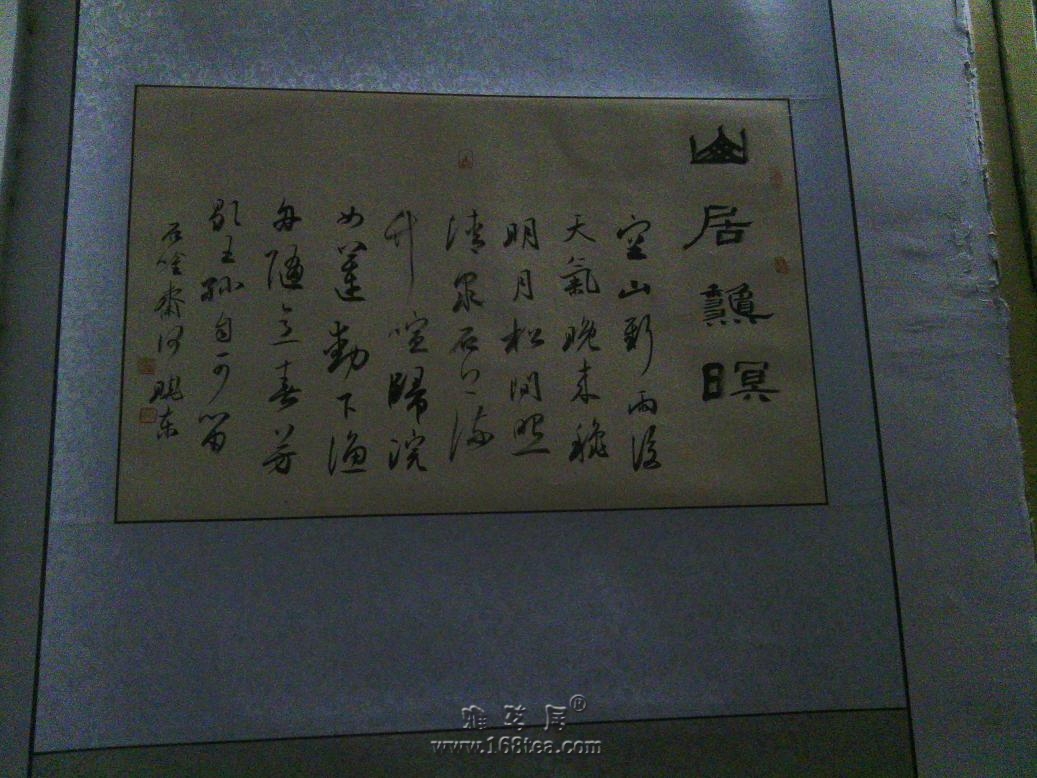 山居龝暝
空山新雨後
天氣晚来穐
明月松間照
清泉石上流
竹喧歸浣
女蓮動下漁
舟隨意春芳
歇王孫自可留
石齋
雅茗居®
www.168tea.com